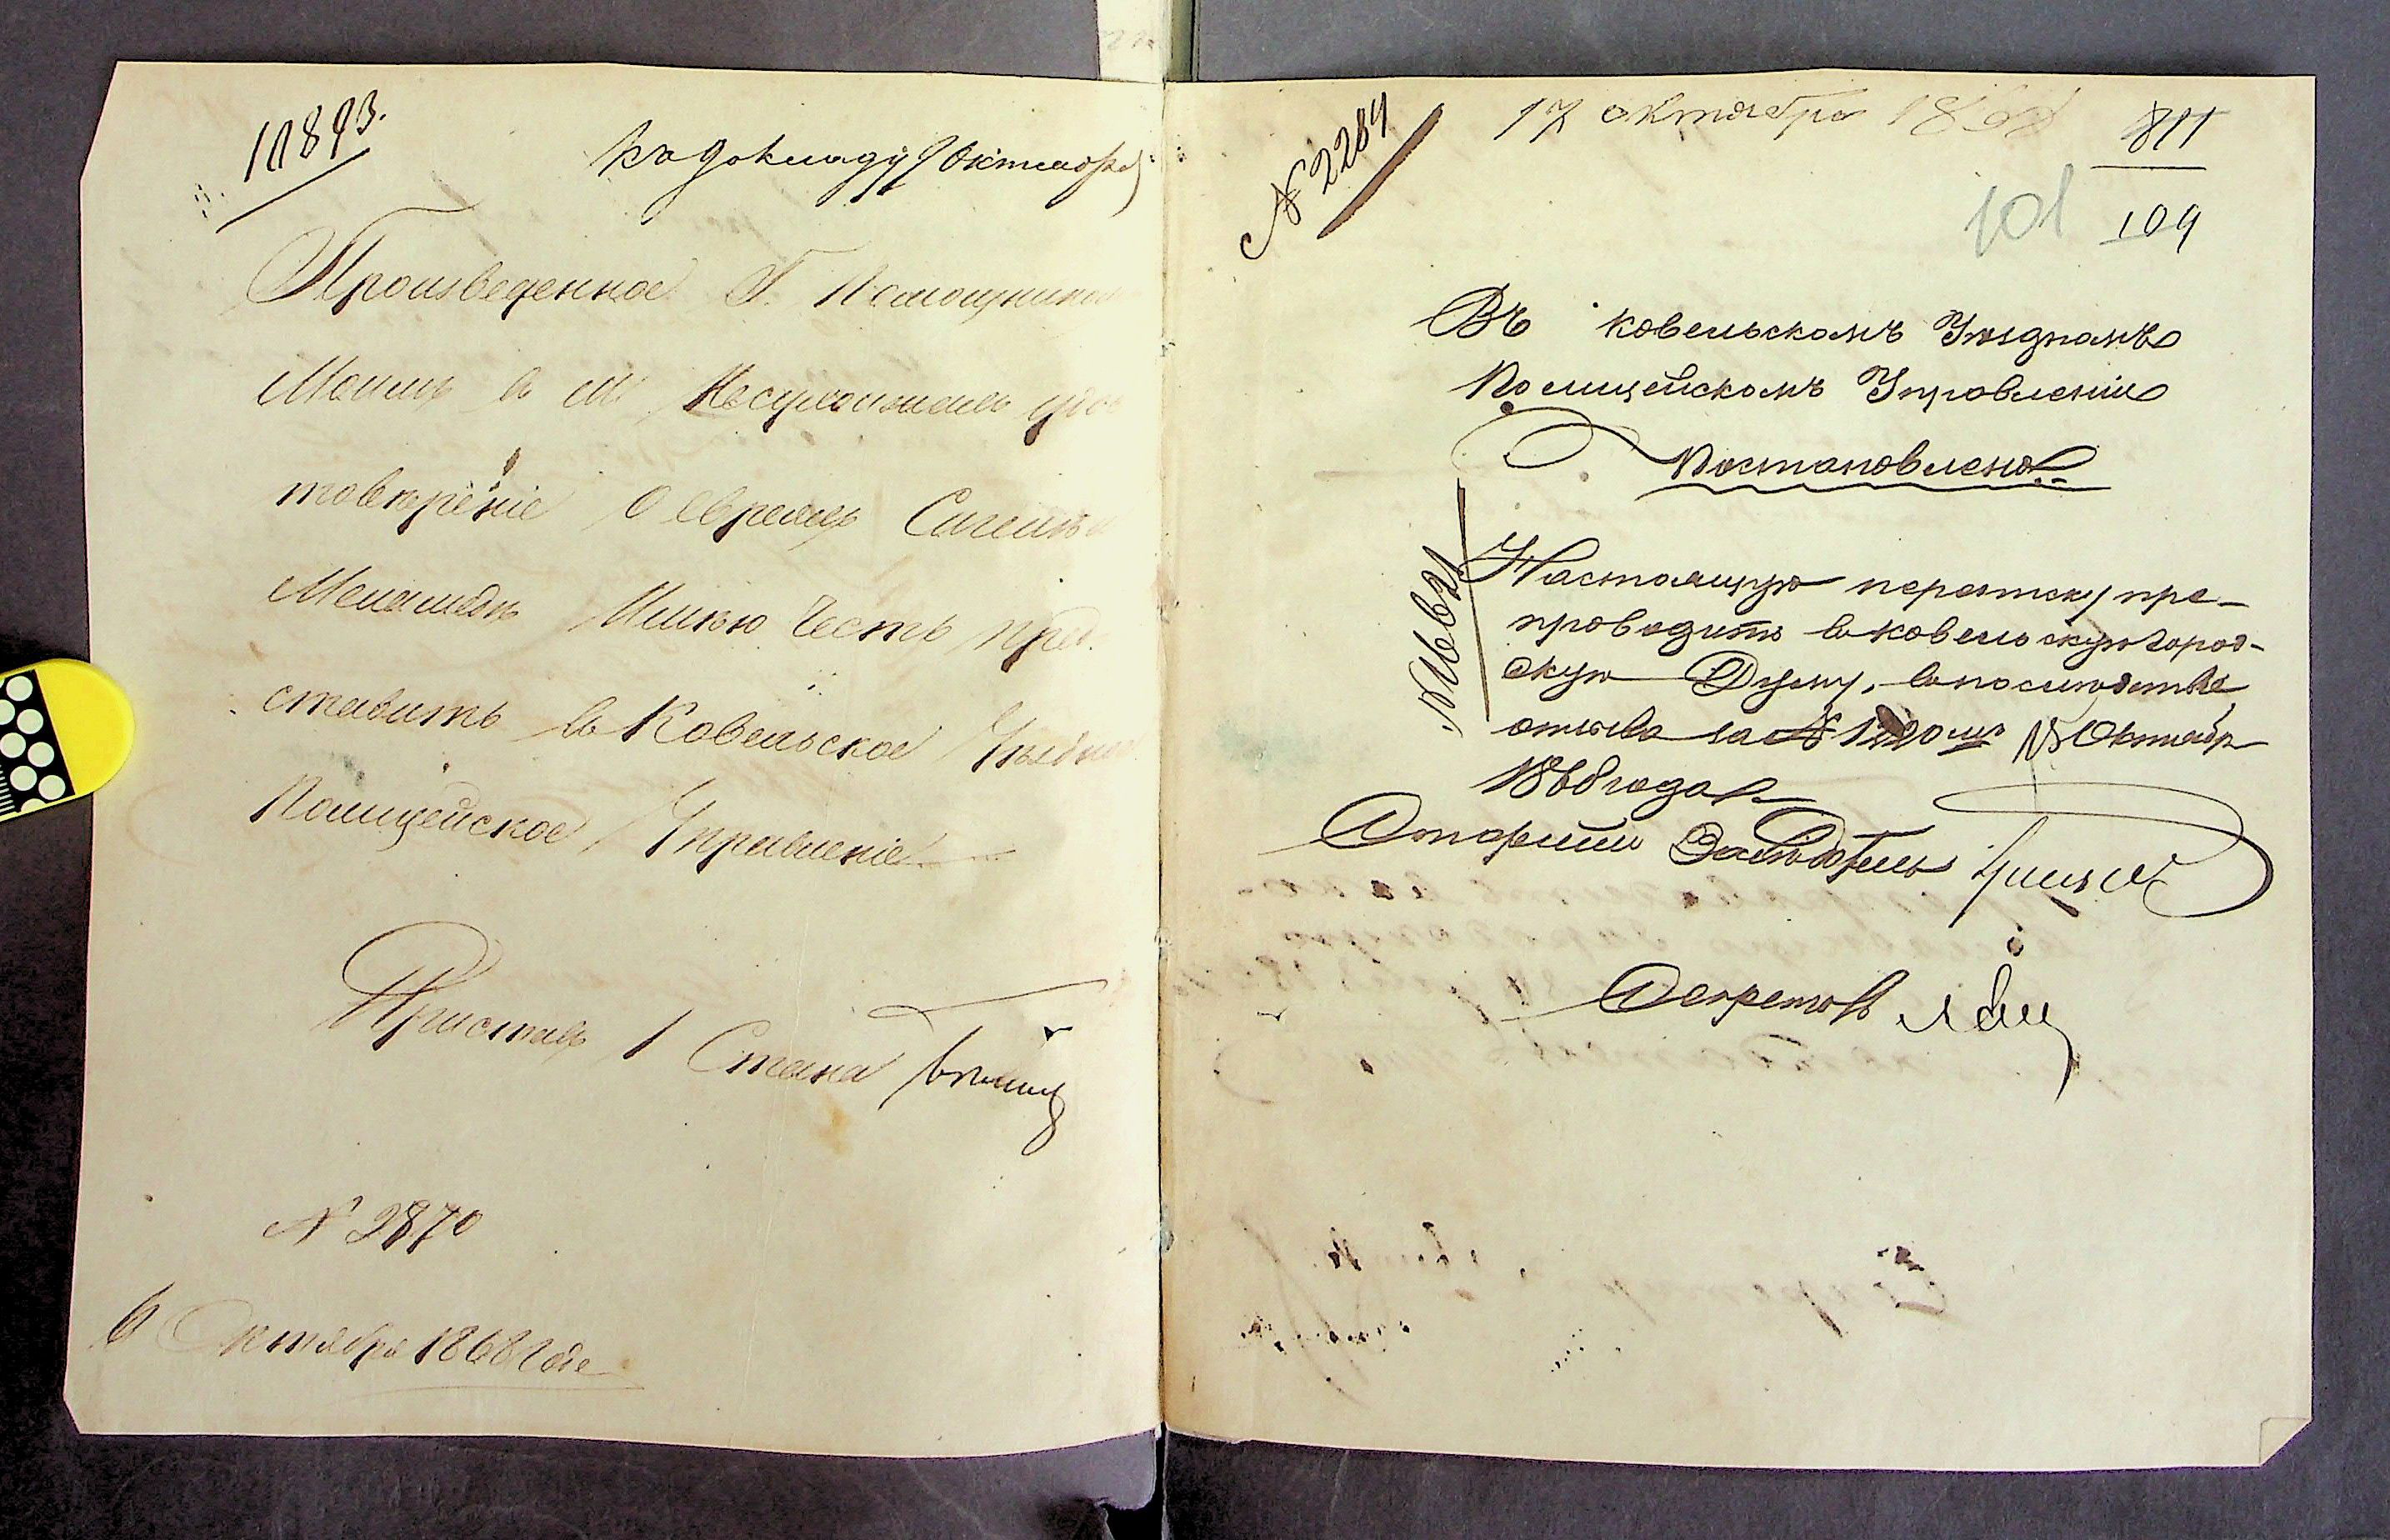 10893.
Къ докладу 9 Октября
Произведенное Г. Помощникомъ
Моимъ в М. Несухоижахъ удос
товѣреніе о Евреяхъ
Имѣю Честь пред
ставить въ Ковельское Уѣздное
Полицейское Управленіе
Приставъ 1 Стана
N 2870
6 Октября 1868 года
N 2284
17 октября 1868
811
101
109
Въ Ковельскомъ Уѣздномъ
Полицейскомъ Управленіи
Постановлено:
Настоящую переписку пре-
проводить въ Ковельскую город-
скую Думу, въ послѣдствіе
отзыва за N 1220 мъ 15 Октября
1868 года
Старшій Засѣдатель
Секретарь